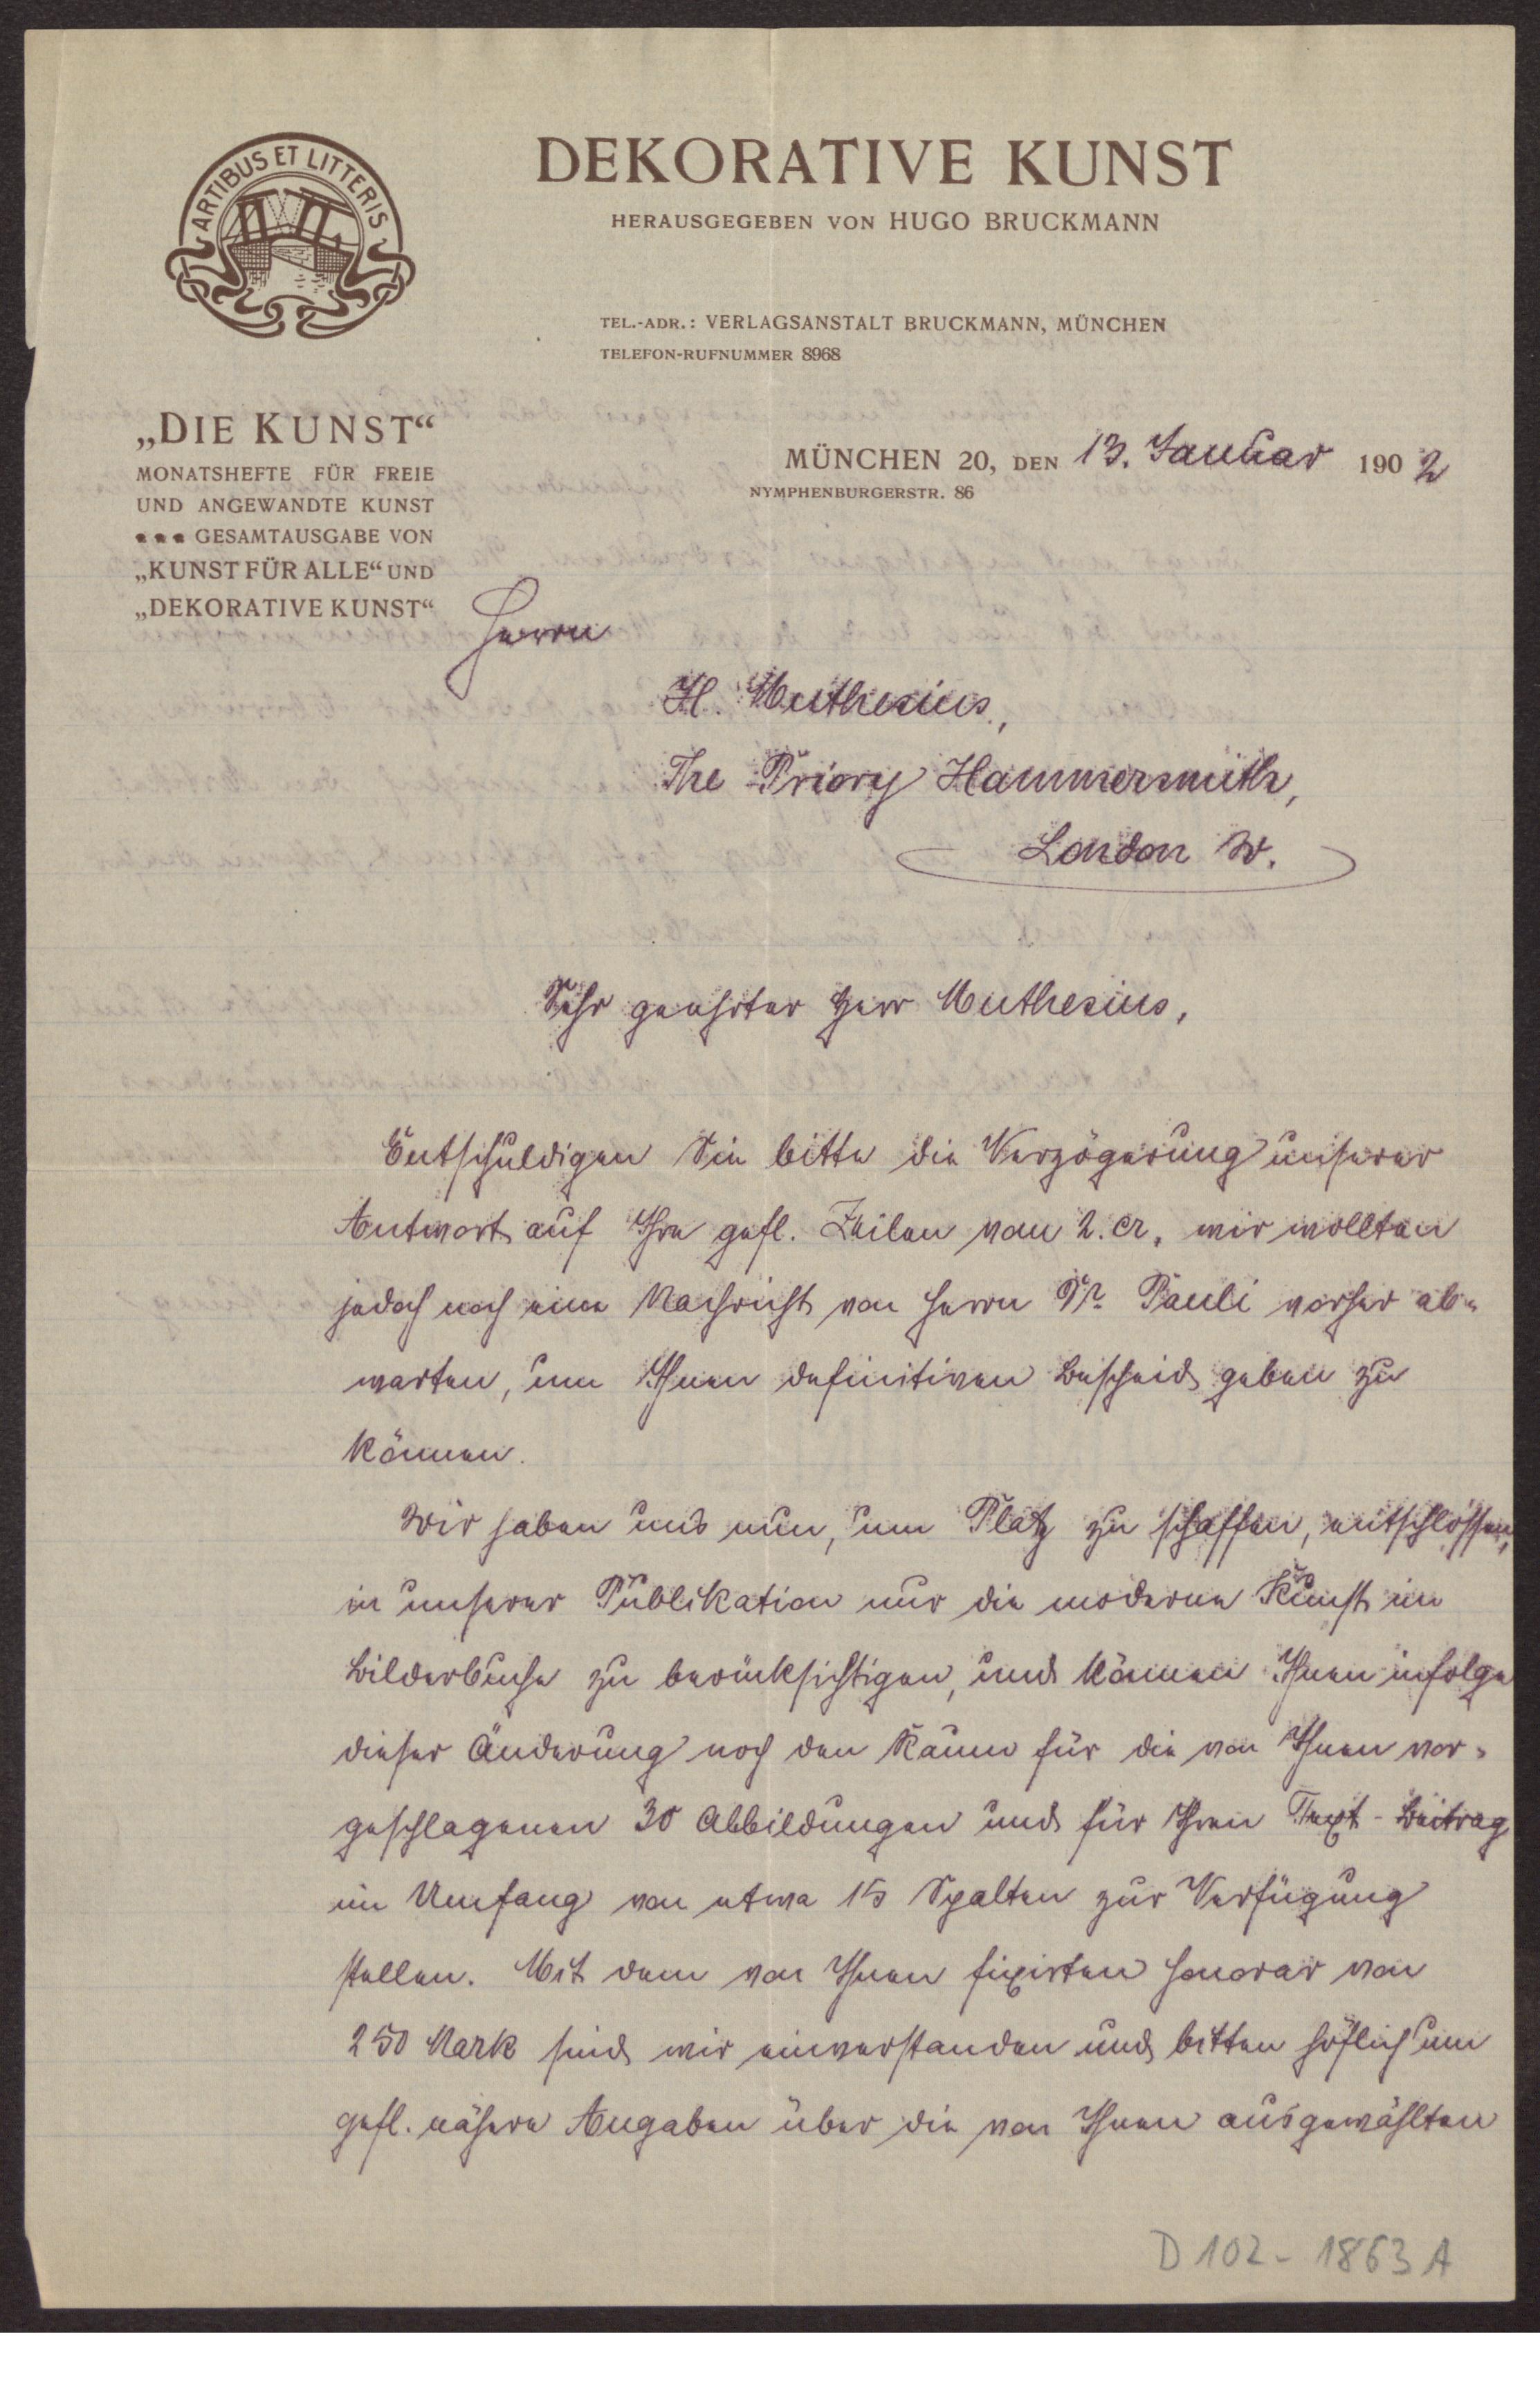 ARTIBUS ET LITTERIS
DEKORATIVE KUNST
HERAUSGEGEBEN VON HUGO BRUCKMANN
TEL.-ADR.: VERLAGSANSTALT BRUCKMANN, MÜNCHEN
TELEFON-RUFNUMMER 8968
„DIE KUNST“
MONATSHEFTE FÜR FREIE
UND ANGEWANDTE KUNST
GESAMTAUSGABE VON
„KUNST FÜR ALLE“ UND
„DEKORATIVE KUNST“
MÜNCHEN 20, DEN 13. Januar 1902
NYMPHENBURGERSTR. 86
Herrn
H. Muthesius,
The Priory Hammersmith,
London W.
Sehr geehrter Herr Muthesius,
Entschuldigen Sie bitte die Verzögerung unserer
Antwort auf Ihre gefl. Zeilen vom 2. cr., wir wollten
jedoch noch eine Nachricht von Herrn Dr. Pauli vorher ab-
warten, um Ihnen definitiven Bescheid geben zu
können.
Wir haben uns nun, um Platz zu schaffen, entschlossen,
in unserer Publikation nur die moderne Kunst im
Bilderbuche zu berücksichtigen, und können Ihnen infolge
dieser Änderung noch den Raum für die von Ihnen vor-
geschlagenen 30 Abbildungen und für Ihren Text-Beitrag
im Umfang von etwa 15 Spalten zur Verfügung
stellen. Mit dem von Ihnen fixirten Honorar von
250 Mark sind wir einverstanden und bitten höflich um
gefl. nähere Angaben über die von Ihnen ausgewählten
D 102 - 1863 A